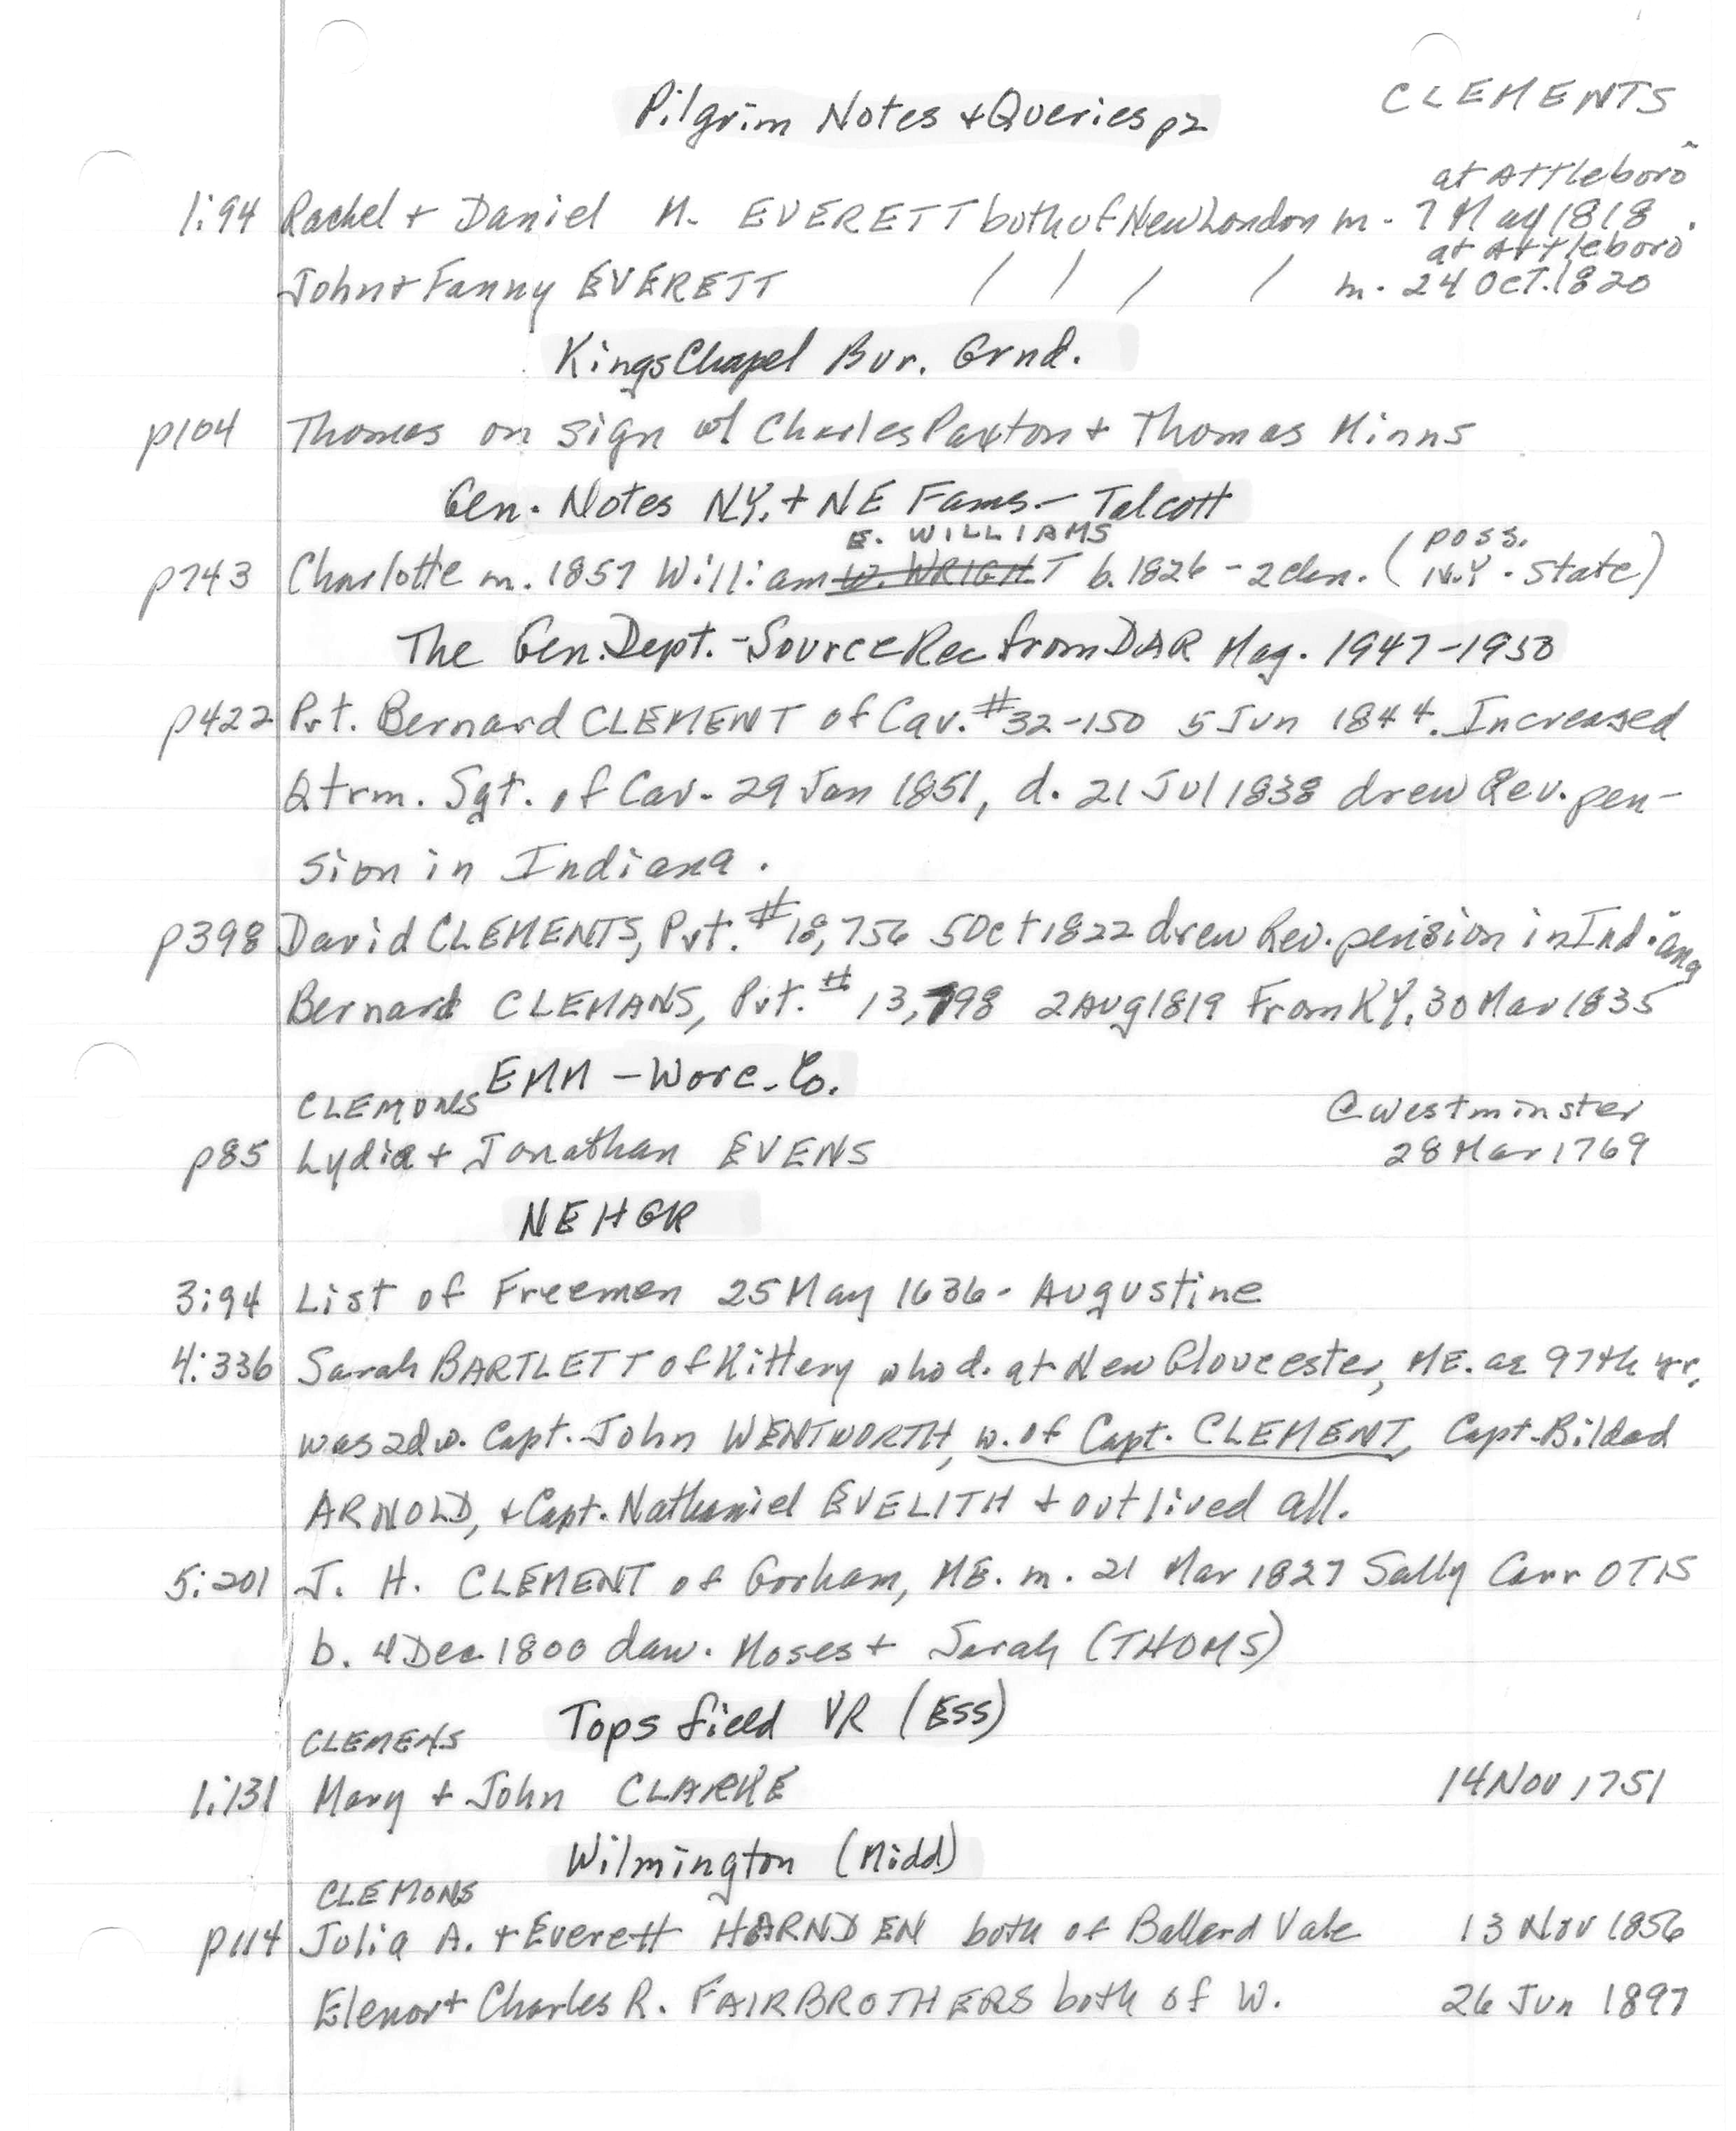 CLEMENTS
Pilgrim Notes + Queries p2
at Attleboro
1:94 Rachel + Daniel M. EVERETT both of New London m. 7 May 1818.
at Attleboro
John + Fanny EVERETT / / / / m. 24 Oct. 1820
Kings Chapel Bur. Grnd.
p104 Thomas on sign w/ Charles Paxton + Thomas Minns
Gen. Notes N.Y. + NE Fams. - Talcott
E. WILLIAMS poss.
p743 Charlotte m. 1857 William W. WRIGHT b. 1826 - 2 chn. (N.Y. State)
The Gen. Dept. - Source Rec from DAR Mag. 1947-1950
p422 Pvt. Bernard CLEMENT of Cav. #32-150 5 Jun 1844. Increased
Qtrm. Sgt. of Cav. 29 Jan 1851, d. 21 Jul 1838 drew Rev. pen-
sion in Indiana.
p398 David CLEMENTS, Pvt. #18,756 5 Oct 1822 drew Rev. pension in Indiana
Bernard CLEMANS, Pvt. # 13,798 2 Aug 1819 From KY. 30 Mar 1835
EMM - Worc. Co.
CLEMONS @ Westminster
p85 Lydia + Jonathan EVENS 28 Mar 1769
NEHGR
3:94 List of Freemen 25 May 1636 - Augustine
4:336 Sarah BARTLETT of Kittery who d. at New Gloucester, ME. ae 97th yr,
was 2d w. Capt. John WENTWORTH, w. of Capt. CLEMENT, Capt. Bildad
ARNOLD, + Capt. Nathaniel EVELITH + outlived all.
5:201 J. H. CLEMENT of Gorham, ME. m. 21 Mar 1827 Sally Carr OTIS
b. 4 Dec 1800 dau. Moses + Sarah (THOMS)
Topsfield VR (Ess)
CLEMENS
1:131 Mary + John CLARKE 14 Nov 1751
Wilmington (Midd)
CLEMONS
p114 Julia A. + Everett HARNDEN both of Ballard Vale 13 Nov 1856
Elenor + Charles R. FAIRBROTHERS both of W. 26 Jun 1897